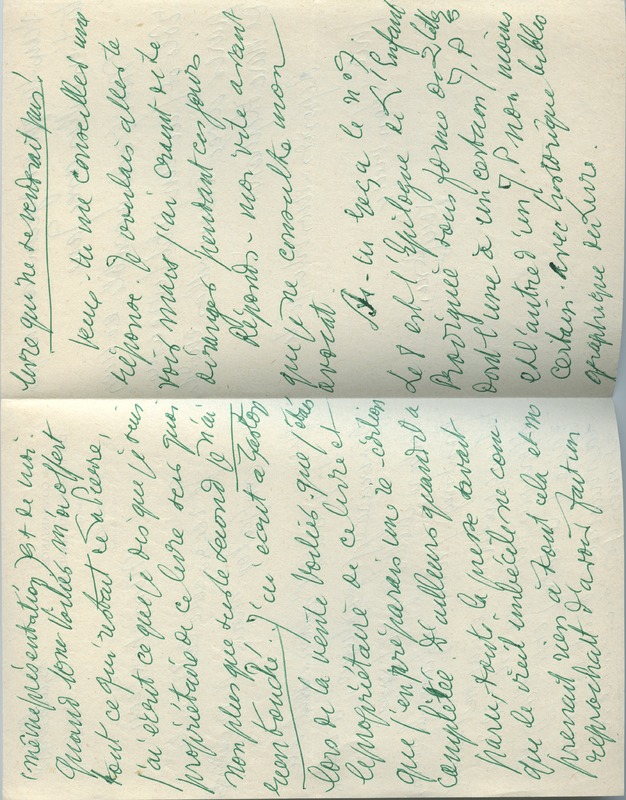 (même présentation) est de moi.
Quand m'a offert
tout ce qui restait de La Pierre,
j'ai écrit ce que je dis que je suis
propriétaire de ce livre sans quoi
non plus que sur le second je n'ai
rien touché. J'ai écrit à Gaston
lors de la vente que j'étais
le propriétaire de ce livre et
que j'en préparais une ré-édition
complétée. D'ailleurs quand il a
paru, toute la presse savait
que le vieil imbécile ne com-
prenait rien à tout cela et me
reprochait d'avoir fait un
livre qui ne se vendrait pas!
Peux-tu me conseiller une
réponse. Je voulais aller te
voir mais j'ai craint de te
déranger pendant ces jours
Réponds-moi vite avant
que je ne consulte mon
avocat.
As-tu reçu le n° 7
Le 8 est l'Epilogue de L'Enfant
Prodigue sous forme de 2
dont l'une à un certain J. P
et l'autre d'un J. P non moins
certain. Avec historique biblio
graphique du Livre.